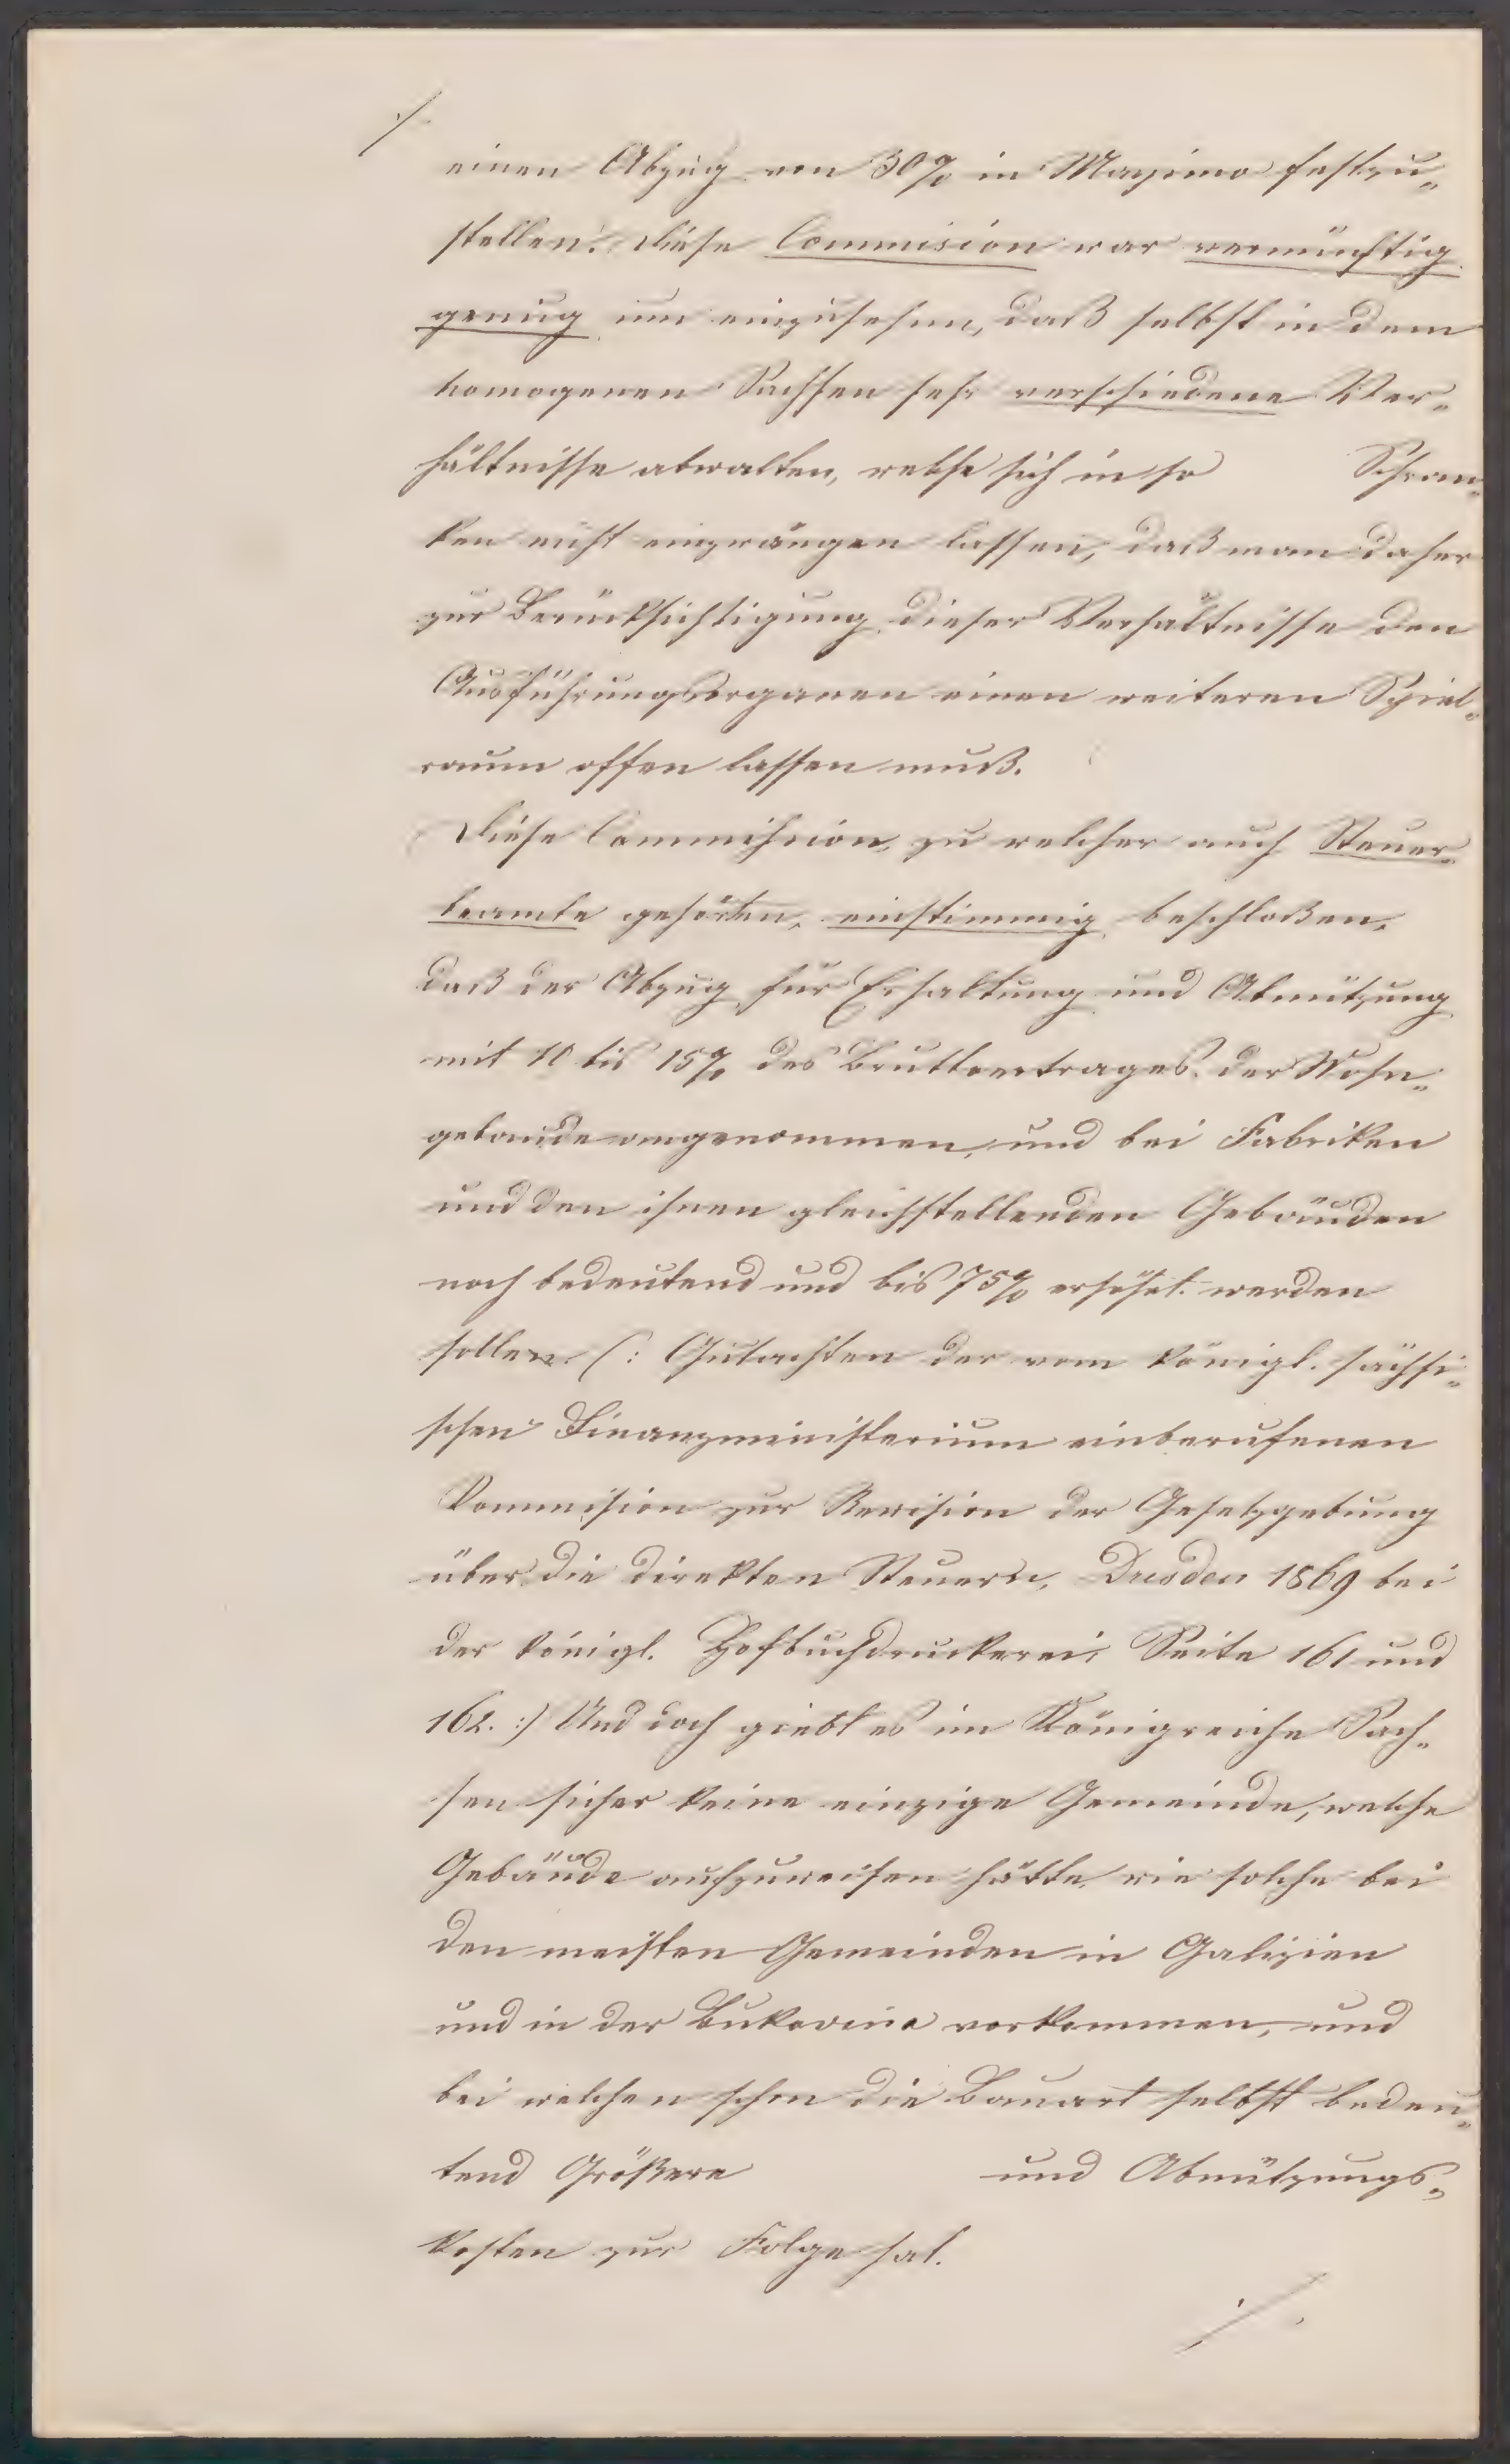 ./.
einen Abzug von 30% in Maximo festzu„
stellen. Diese Commision war vernünftig
genug um einzusehen, daß selbst in dem
homogenen Sachsen sehr verschiedene Ver„
hältnisse obwalten, welche sich in so Schran„
ken nicht einzwängen lassen, daß man daher
zur Berücksichtigung dieser Verhältnisse den
Ausführungsorganen einen weiteren Spiel„
raum offen lassen muß.
Diese Commission, zu welcher auch Steuer„
beamte gehörten, einstimmig beschloßen,
daß der Abzug für Erhaltung und Abnützung
mit 10 bis 15% des Bruttoertrages der Wohn„
gebaude angenommen, und bei Fabriken
und den ihnen gleichstellenden Gebäuden
noch bedeutend und bis 75% erhöht werden
sollen (: Gutachten der vom königl. sächsi„
schen Finanzministerium einberufenen
Kommision zur Revision der Gesetzgebung
über die direkten Steuern, Dresden 1869 bei
der königl. Hofbuchdruckerei, Seite 161 und
162. :) Und doch giebt es im Königreiche Sach„
sen sicher keine einzige Gemeinde, welche
Gebäude aufzuweisen hätte, wie solche bei
den meisten Gemeinden in Galizien
und in der Bukovina vorkommen, und
bei welchen schon die Bauart selbst bedeu„
tend Größere und Abnützungs„
kosten zur Folge hat.
./.